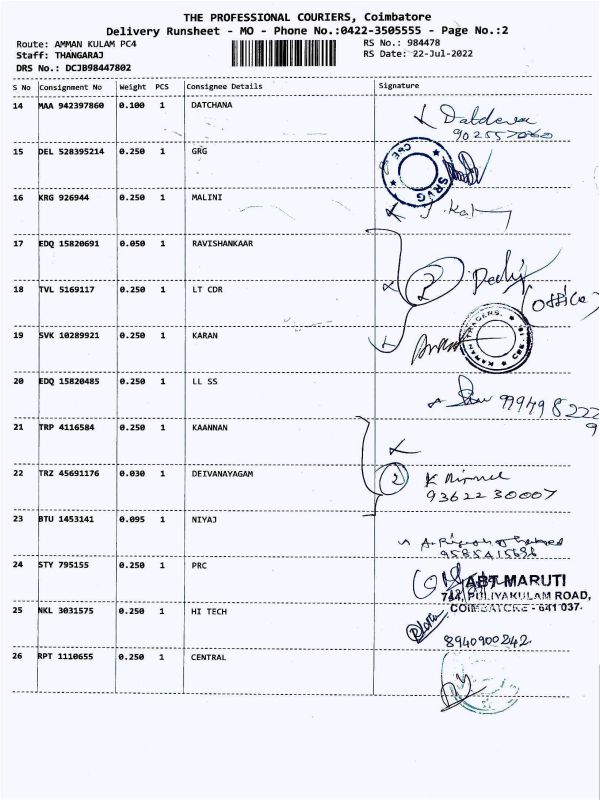 THE PROFESSIONAL COURIERS, Coimbatore
Delivery Runsheet - MO - Phone No.:0422-3505555 - Page No.:2
Route: AMMAN KULAM PC4 RS No.: 984478
Staff: THANGARAJ RS Date: 22-Jul-2022
DRS No.: DCJB98447802
S No Consignment No Weight PCS Consignee Details Signature
14 MAA 942397860 0.100 1 DATCHANA
15 DEL 528395214 0.250 1 GRG
SRVG
16 KRG 926944 0.250 1 MALINI
17 EDQ 15820691 0.050 1 RAVISHANKAAR
18 TVL 5169117 0.250 1 LT CDR
(Office)
19 SVK 10289921 0.250 1 KARAN
20 EDQ 15820485 0.250 1 LL SS
21 TRP 4116584 0.250 1 KAANNAN
22 TRZ 45691176 0.030 1 DEIVANAYAGAM
2
9362230007
23 BTU 1453141 0.095 1 NIYAJ
24 STY 795155 0.250 1 PRC
ABT MARUTI
744, PULIYAKULAM ROAD,
COIMBATORE - 641 037.
25 NKL 3031575 0.250 1 HI TECH
8940900842
26 RPT 1110655 0.250 1 CENTRAL